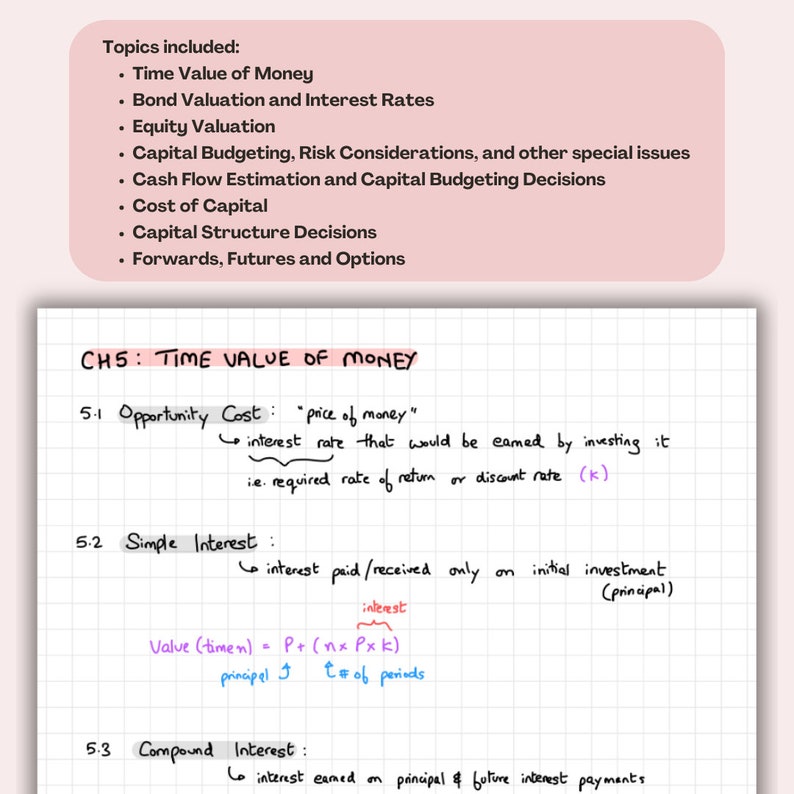 Topics included:
• Time Value of Money
• Bond Valuation and Interest Rates
• Equity Valuation
• Capital Budgeting, Risk Considerations, and other special issues
• Cash Flow Estimation and Capital Budgeting Decisions
• Cost of Capital
• Capital Structure Decisions
• Forwards, Futures and Options
CH5: TIME VALUE OF MONEY
5.1 Opportunity Cost: "price of money"
↳ interest rate that would be earned by investing it
i.e. required rate of return or discount rate (k)
5.2 Simple Interest:
↳ interest paid/received only on initial investment
(principal)
interest
Value (time n) = P + (n x P x k)
principal ↑ ↑ # of periods
5.3 Compound Interest:
↳ interest earned on principal & future interest payments